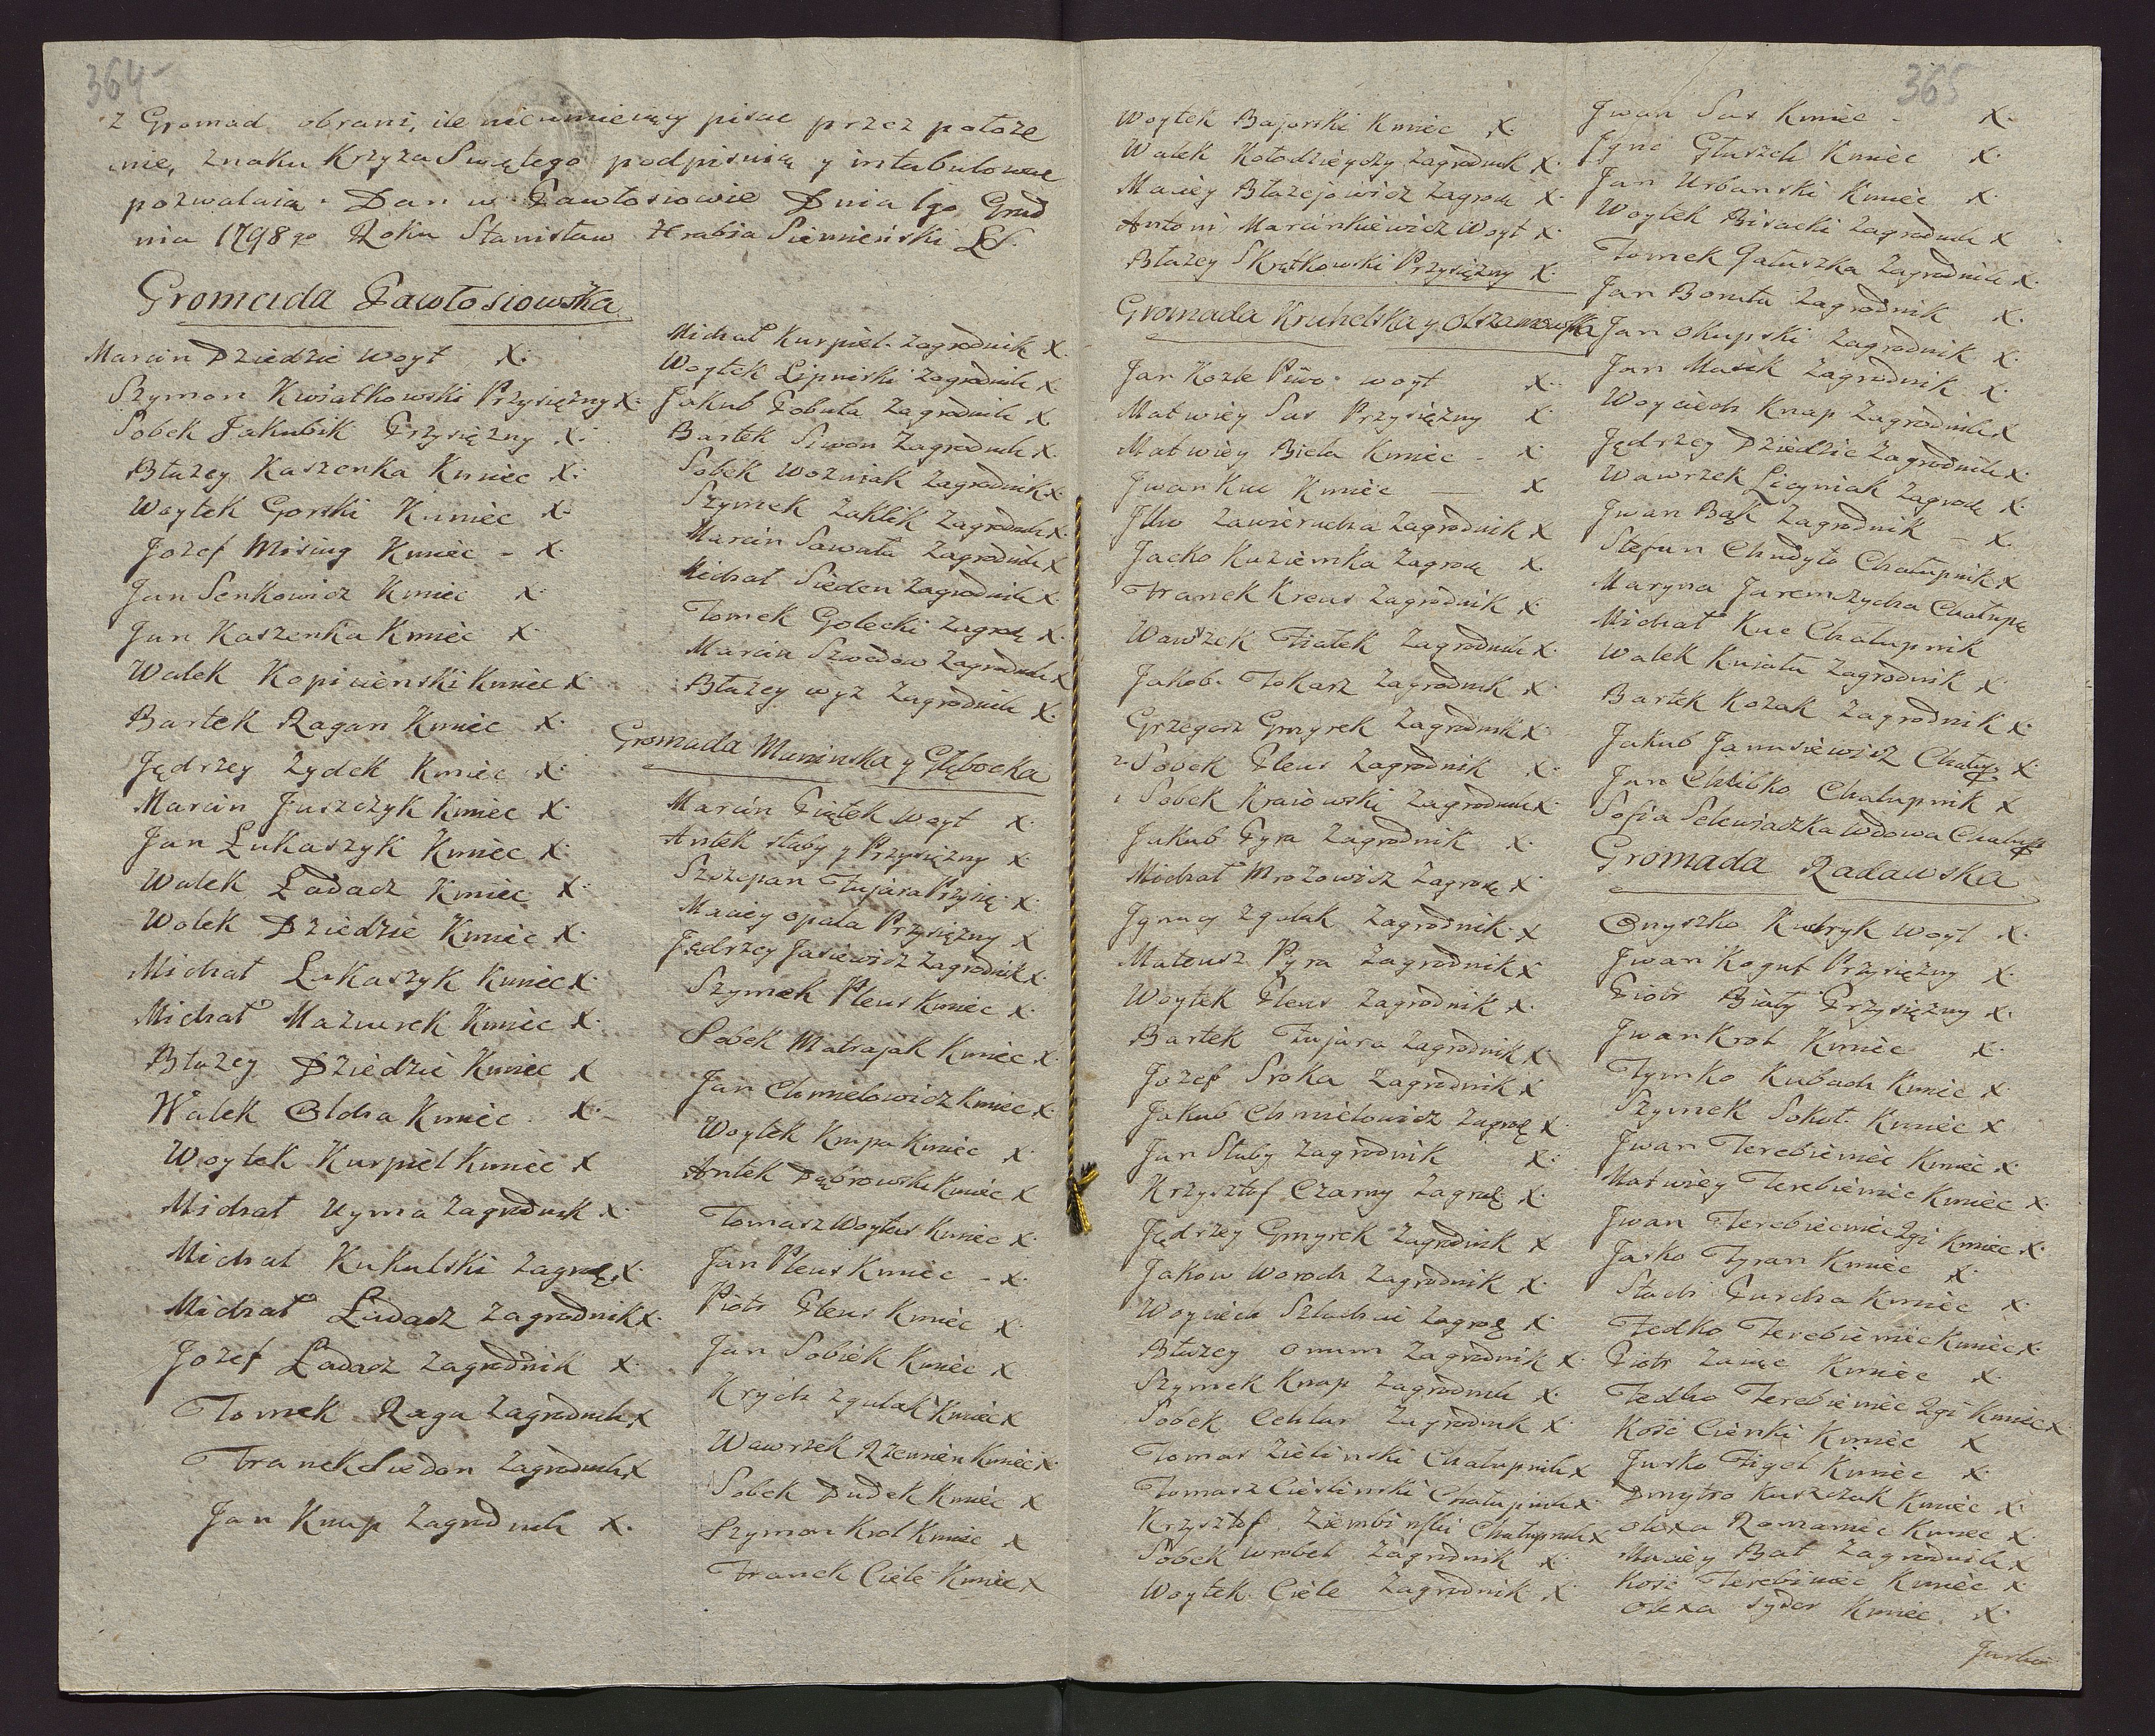 364
z Gromad obrani, ile nieumieiący pisac przez położe
nie, znaku Krzyża Swiętego podpisuią y intabulowac
pozwalaia. Dan w Pawłosiowie Dnia 1go Grud
nia 1798go Roku Stanisław Hrabia Siemieński LS.
Gromada Pawłosiowska
Marcin Dziedzic Woyt X.
Szymon Kwiatkowski Przysiężny X.
Sobek Jakubik Przysiężny X.
Błażey Kaszenka Kmiec X.
Woytek Gorski Kmiec X.
Jozef Mising Kmiec - X.
Jan Senkowicz Kmiec X.
Jan Kaszenka Kmiec X.
Walek Kopicienski Kmiec X
Bartek Ragan Kmiec X.
Jędrzey Zydek Kmiec X.
Marcin Juszczyk Kmiec X.
Jan Łukaszyk Kmiec X.
Walek Ladacz Kmiec X.
Wolek Dziedzic Kmiec X.
Michał Lukaszyk Kmiec X.
Michał Mazurek Kmiec X.
Błażey Dziedzic Kmiec X
Walek Oldra Kmiec X.
Woytek Kurpiel Kmiec X
Michał Uyma Zagrodnik X.
Michal Kukulski Zagro X.
Michał Ladacz Zagrodnik X.
Jozef Ladacz Zagrodnik X.
Tomek Raga Zagrodnik X
Franek Siedon Zagrodnik X
Jan Knap Zagrodnik X.
Michał Kurpiel Zagrodnik X.
Woytek Lipniski Zagrodnik X.
Jakub Gobula Zagrodnik X.
Bartek Siwon Zagrodnik X.
Sobek Wozniak Zagrodnik X.
Szymek Zaklik Zagrodnik X.
Marcin Sawula Zagrodnik X
Michał Sieden Zagrodnik X.
Tomek Golecki Zagrod X.
Marcin Szwedow Zagrodnik X
Błażey Wyz Zagrodnik X.
Gromada Muninska y Głęboeka
Marcin Piątek Woyt X.
Antek Słaby y Przysiężny X.
Szczepan Fujara Przysię. X.
Maciey Opala Przysiężny X
Jędrzey Jasiewicz Zagrodnik X.
Szymek Pleus Kmiec X.
Sobek Matrajak Kmiec X.
Jan Chmielowicz Kmiec X.
Woytek Knapa Kmiec X.
Antek Dąbrowski Kmiec X
Tomasz Woytus Kmiec X.
Jan Pleus Kmiec - X.
Piotr Pleus Kmiec X.
Jan Sobiek Kmiec X
Krych Zgulak Kmiec X
Wawrzek Rzemien Kmiec X.
Sobek Dudek Kmiec X
Szymon Krol Kmiec X
Franek Ciele Kmiec X
365
Woytek Bajorski Kmiec X.
Walek Kołodzieyszy Zagrodnik X.
Maciey Błazejowicz Zagrod X.
Antoni Marcinkiewicz Woyt X.
Błażey Skrętkowski Przysiężny X.
Gromada Kruhelska y Olszanowska
Jan Kozle Piwo. Woyt X.
Matwiey Sas Przysiężny X.
Matwiey Biela Kmiec - X.
Jwan Kuc Kmiec — X
Jlko Zawierucha Zagrodnik X
Jacko Kuziemka Zagrod X.
Franek Kreus Zagrodnik X.
Wawrzek Fiałek Zagrodnik X.
Jakob. Tokarz Zagrodnik X.
Grzegorz Gmyrek Zagrodnik X.
2. Sobek Pleus Zagrodnik X.
1 Sobek Kraiowski Zagrodnik X.
Jakub Pyra Zagrodnik X.
Michał Mrozowicz Zagrod X.
Jgnacy Zgulak Zagrodnik. X
Mateusz Pyra Zagrodnik X
Woytek Pleus Zagrodnik X.
Bartek Fujara Zagrodnik X
Jozef Sroka Zagrodnik X
Jakub Chmielowicz Zagrod X.
Jan Słaby Zagrodnik X.
Krzysztof Czarny Zagrod X.
Jędrzey Gmyrek Zagrodnik X
Jakow Woroch Zagrodnik X.
Woyciech Szlachcic Zagrod X.
Błażey Onum Zagrodnik X.
Szymek Knap Zagrodnik X.
Sobek Cehlar Zagrodnik X.
Tomas Zielinski Chałupnik X
Tomasz Cieslinski Chałupnik X.
Krzysztof Ziembinski Chałupnik X
Sobek Wrobel Zagrodnik X.
Woytek Ciele Zagrodnik X.
Jwan Sas Kmiec - X.
Jgnc Głuszek Kmiec X.
Jan Urbanski Kmiec X.
Woytek Bisacki Zagrodnik X
Tomek Gałuszka Zagrodnik X.
Jan Boruta Zagrodnik X.
Jan Okupski Zagrodnik X.
Jan Masik Zagrodnik. X.
Woyciech Knap Zagrodnik X
Jędrzey Dziedzic Zagrodnik X.
Wawrzek Liczniak Zagrod X.
Jwan Bąk Zagrodnik - X.
Stefan Chudyło Chałupnik X
Maryna Jaremszycha Chałupę
Michał Kuc Chałupnik
Walek Kuiata Zagrodnik X
Bartek Kozak Zagrodnik X.
Jakub Janusiewicz Chałup X.
Jan Chlibko Chałupnik X
Sofia Selewiaszka Wdowa Chałup
Gromada Radawska
Onyszko Kudryk Woyt X.
Jwan Kogut Przysiężny X.
Piotr Biały Przysiężny X.
Jwan Krol Kmiec X.
Tymko Kubach Kmiec X
Szymek Sokol. Kmiec X
Jwan Terebieniec Kmiec X.
Matwiey Terebieniec Kmiec X.
Jwan Terebieniec 2gi Kmiec X.
Jasko Tyran Kmiec X.
Stach Purcha Kmiec X.
Fedko Terebieniec Kmiec X.
Piotr Zaiąc Kmiec X.
Fedko Terebieniec 2gi Kmiec X
Kość Cienki Kmiec X
Jurko Figel Kmiec X.
Dmytro Kuszczak Kmiec X.
Olexa Romaniec Kmiec X.
Maciey Bat Zagrodnik X
Kość Terebiniec Kmiec X.
Olexa Syder Kmiec. X.
Jurko